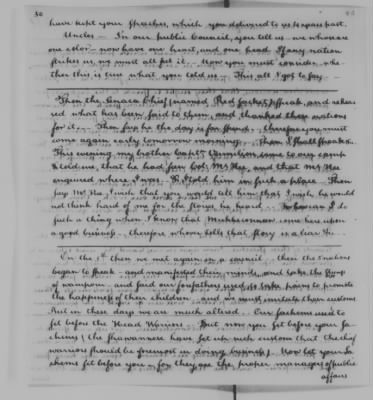 have kept your Speeches, which you delivered to us years past.
Uncles — In our public Council, you tell us. we who are
one color — now have one heart, and one head. If any nation
strikes us, we must all feel it. Now you must consider, whe-
ther this is true what you told us — This all I got to say.
Then the Seneca Chief (named Red Jacket) speak, and rehear-
sed what has been said to them, and thanked these nations
for it. Then says he the day is far spent, therefore you must
come again early tomorrow morning. Then I shall speak.
This evening my brother Capt. came to our camp
& told me, that he had seen Col. McKee, and that McKee
enquired where I was. & I told him in such a place. Then
says McKee I wish that you would tell him that I wish, he would
not think hard of me for the story he heard
such a thing when I know that came here upon
a good business. therefore whoever tells that story is a liar
On the then we met again in a council. then the
began to speak — and manifested their minds, and take the Strap
of wampum and said our forefathers used to take pains to promote
the happiness of their children, and we must imitate their customs
But in these days we are much altered. Our Sachems used to
set before the Head Warriors — But now you set before your Sa-
chems (the Shawannese have set up such custom that the chief
warriors should be foremost in doing business) Now let your Sa-
chems set before you — for they are the proper managers of public
affairs